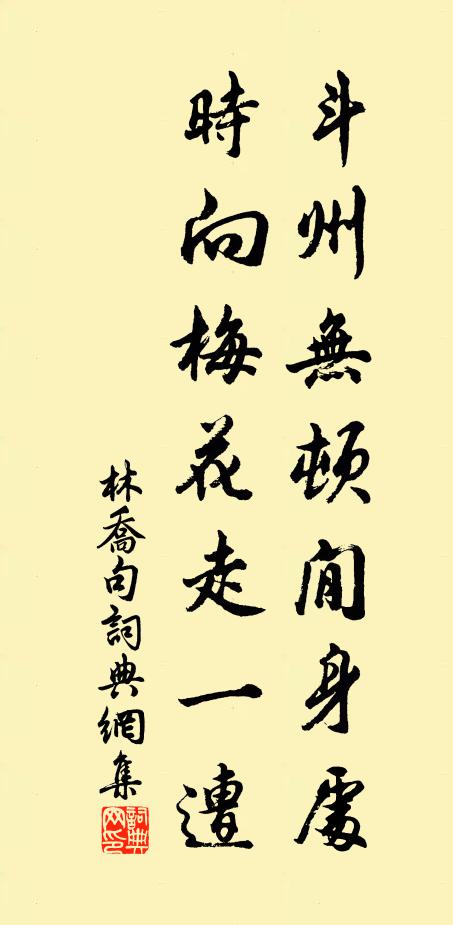 斗州無頓閒身處
時向梅花走一遭
林喬句詞典網集
詞典網印